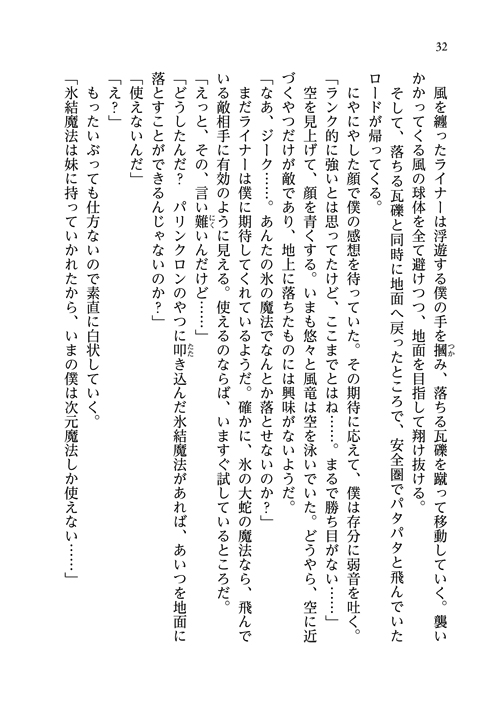 32
　風を纏ったライナーは浮遊する僕の手を摑み、落ちる瓦礫を蹴って移動していく。襲い
かかってくる風の球体を全て避けつつ、地面を目指して翔け抜ける。
　そして、落ちる瓦礫と同時に地面へ戻ったところで、安全圏でパタパタと飛んでいた
ロードが帰ってくる。
　にやにやした顔で僕の感想を待っていた。その期待に応えて、僕は存分に弱音を吐く。
「ランク的に強いとは思ってたけど、ここまでとはね……。まるで勝ち目がない……」
　空を見上げて、顔を青くする。いまも悠々と風竜は空を泳いでいた。どうやら、空に近
づくやつだけが敵であり、地上に落ちたものには興味がないようだ。
「なあ、ジーク……。あんたの氷の魔法でなんとか落とせないのか？」
　まだライナーは僕に期待してくれているようだ。確かに、氷の大蛇の魔法なら、飛んで
いる敵相手に有効のように見える。使えるのならば、いますぐ試しているところだ。
「えっと、その、言い難いんだけど……」
「どうしたんだ？　パリンクロンのやつに叩き込んだ氷結魔法があれば、あいつを地面に
落とすことができるんじゃないのか？」
「使えないんだ」
「え？」
　もったいぶっても仕方ないので素直に白状していく。
「氷結魔法は妹に持っていかれたから、いまの僕は次元魔法しか使えない……」
つか
にく
たた